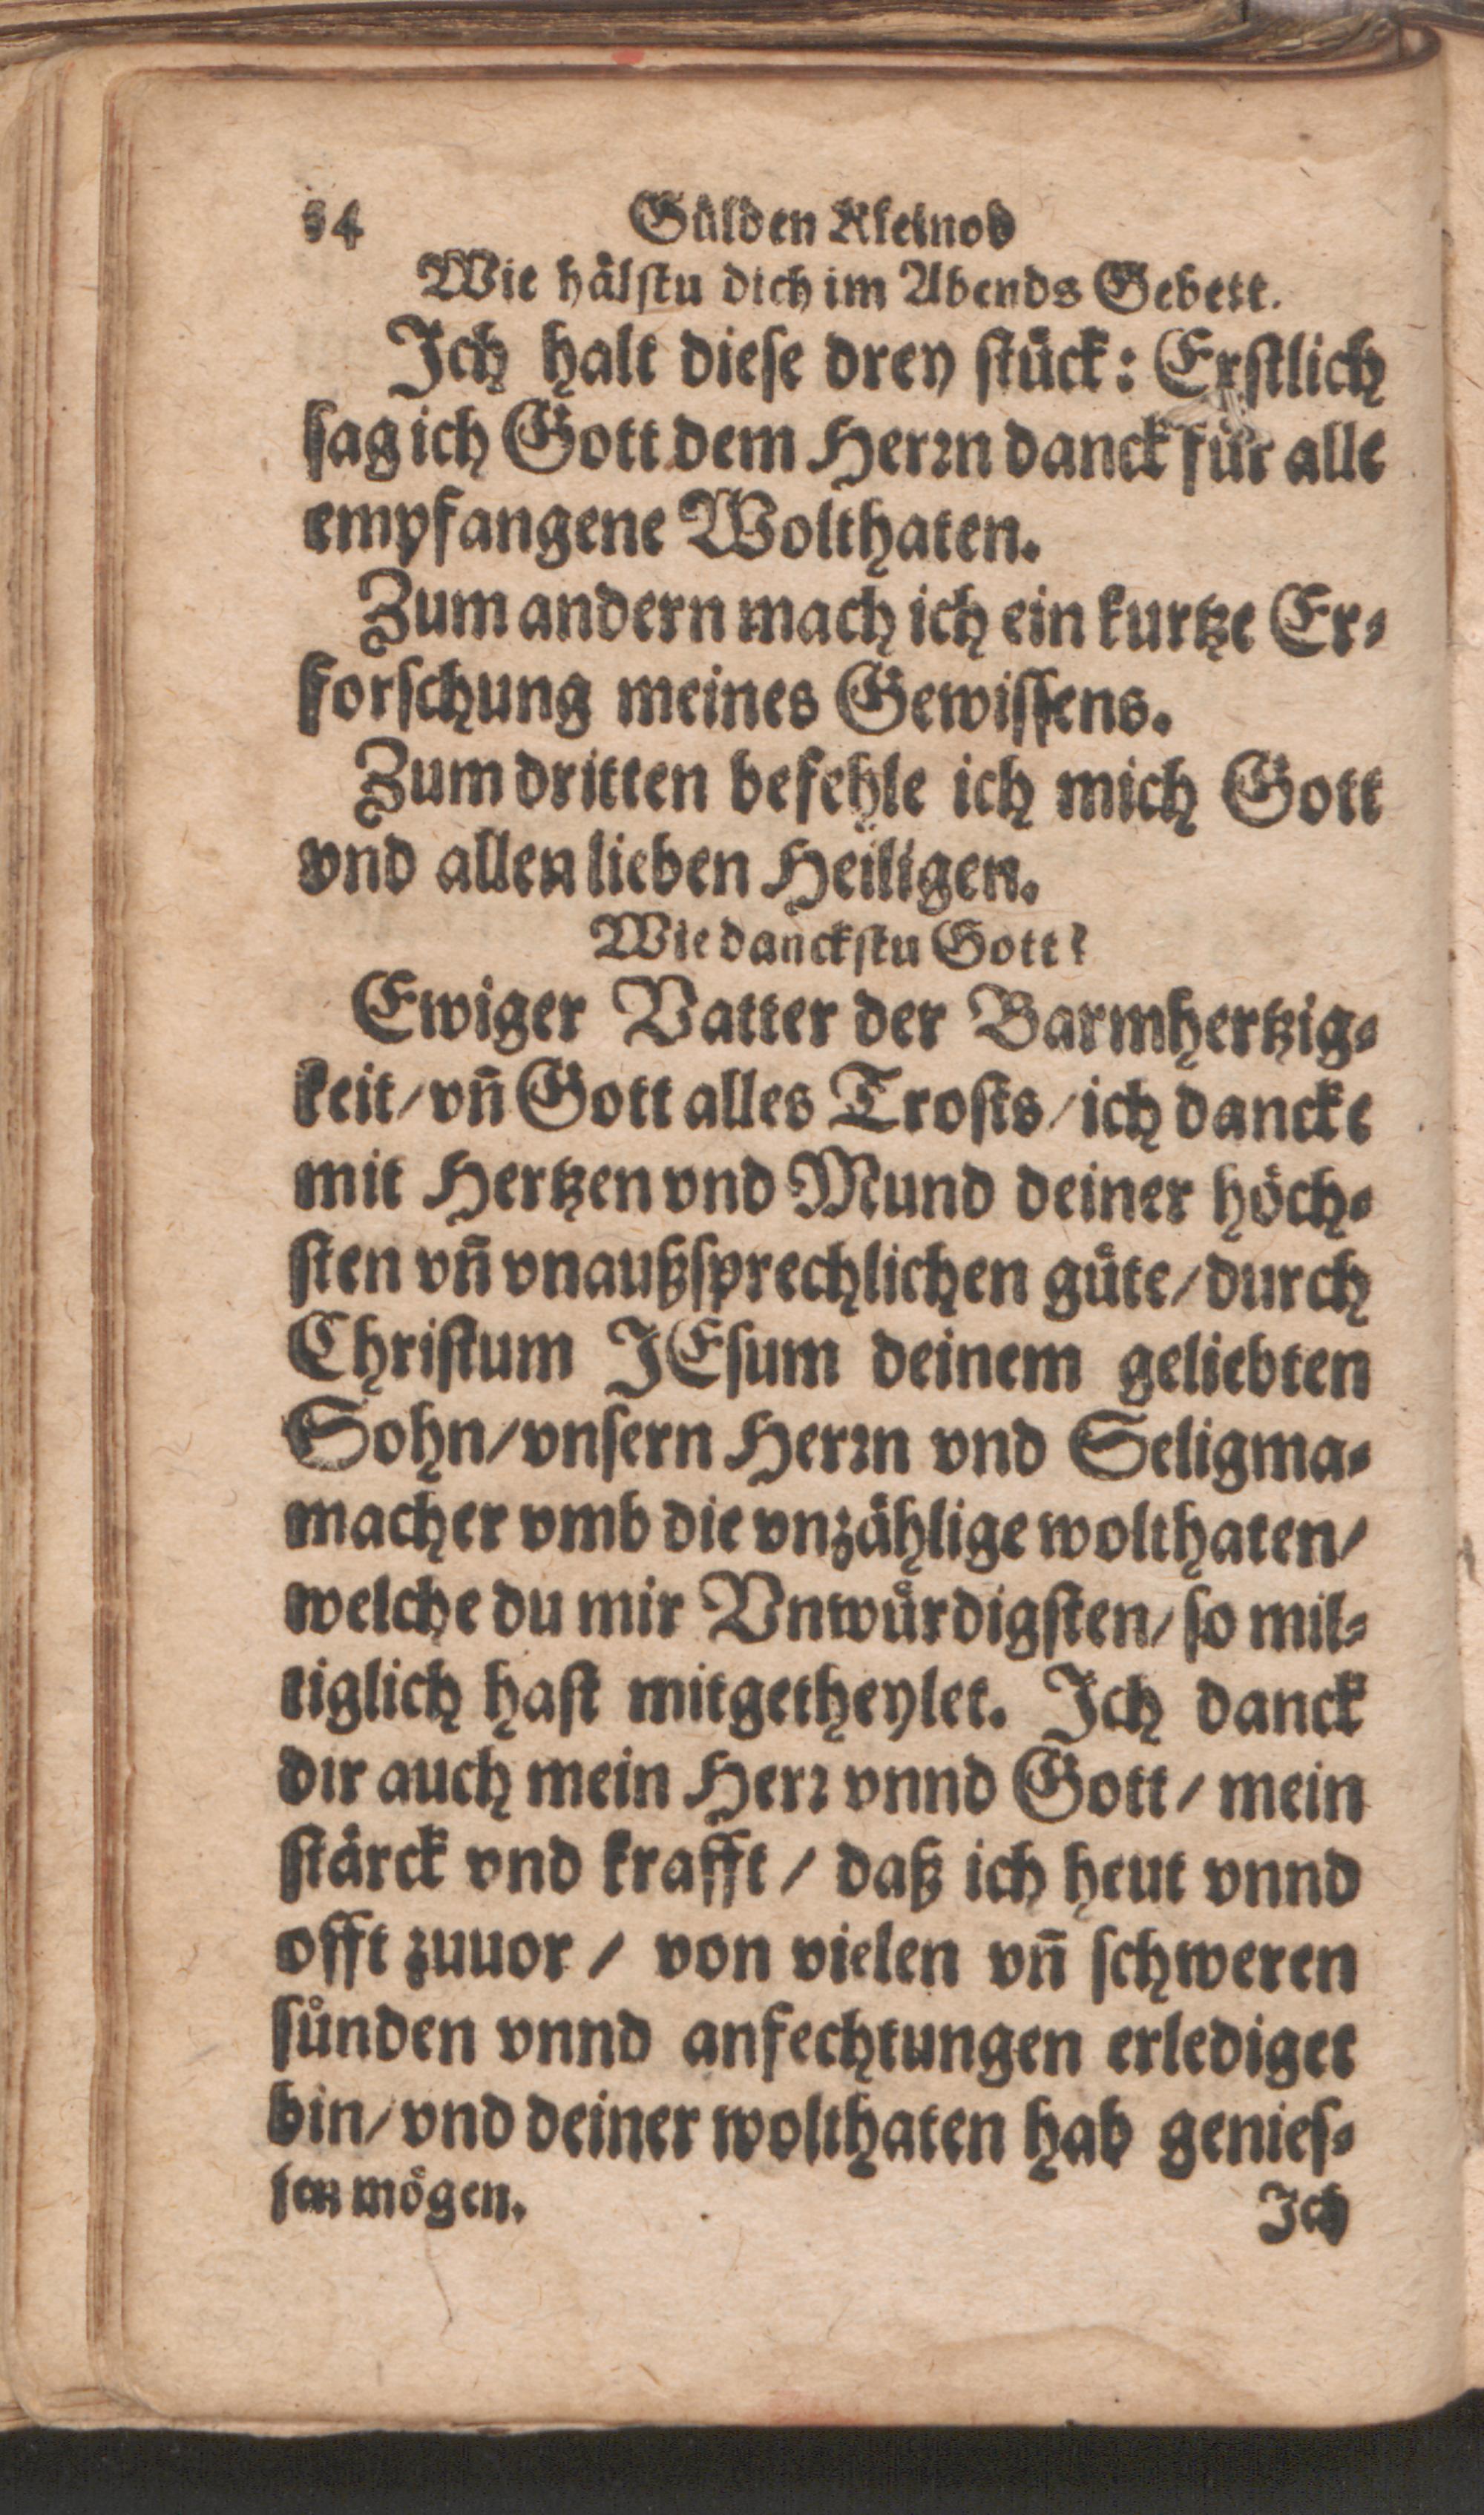 34 Gülden Kleinod
Wie hälſtu dich im Abends Gebett.
Ich halt dieſe drey ſtück: Erſtlich
ſag ich Gott dem Herꝛn danck für alle
empfangene Wolthaten.
Zum andern mach ich ein kurtze Er⸗
forſchung meines Gewiſſens.
Zum dritten befehle ich mich Gott
vnd allen lieben Heiligen.
Wie danckſtu Gott?
Ewiger Vatter der Barmhertzig⸗
keit/ vn̄ Gott alles Troſts/ ich dancke
mit Hertzen vnd Mund deiner höch⸗
ſten vn̄ vnaußſprechlichen güte/ durch
Chriſtum JEſum deinem geliebten
Sohn/ vnſern Herꝛn vnd Seligma⸗
macher vmb die vnzählige wolthaten/
welche du mir Vnwürdigſten/ ſo mil⸗
tiglich haſt mitgetheylet. Ich danck
dir auch mein Herꝛ vnnd Gott/ mein
ſtärck vnd krafft/ daß ich heut vnnd
offt zuuor/ von vielen vn̄ ſchweren
ſünden vnnd anfechtungen erlediget
bin/ vnd deiner wolthaten hab genieſ⸗
ſen mögen. Ich